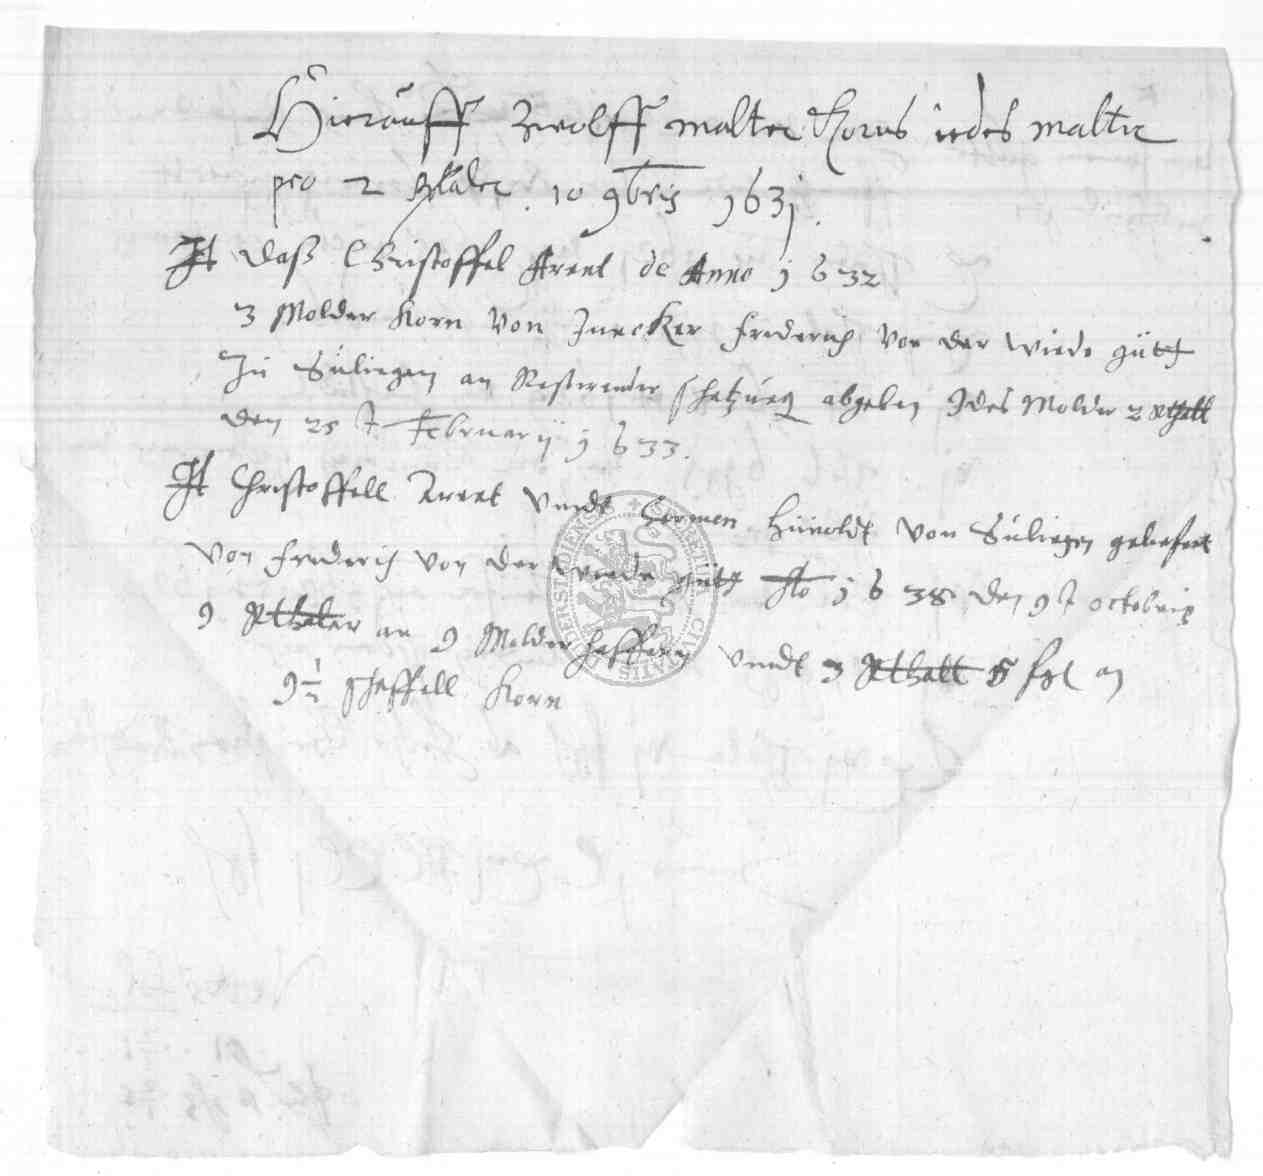 Hierauff Zwolff malter Korns iedes malter
pro 2 thaler. 10 9bris 163j.
It daß Christoffel Arent de Anno j632
3 Molder Korn Von Juncker Friderich Von der Wiede gütt
Zu Sulingen an Restirender schatzung abgeben Jdes Molder 2 Rthall
den 25 t Februarij j633.
It Christoffell Arent Vundt Hermen Von Sulingen geliefert
Von Friderich Von der Wiede gütt Ao j638 den 9 t octobris
9 Rthaler an 9 Molder haffern Vundt 3 Rthall 5 ßgl an
9½ scheffell Korn